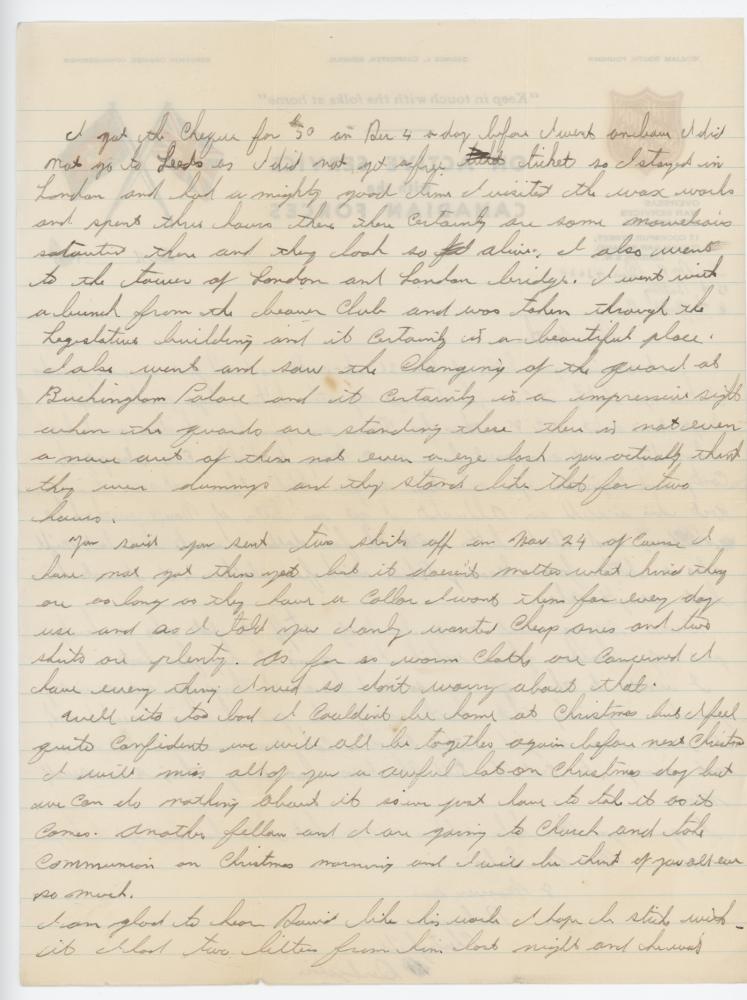 I got the Cheque for $50 on Dec 4 a day before I went on leave I did
not go to Leeds as I did not get a free ticket so I stayed in
London and had a mighty good time I visited the wax works
and spent three hours there there certainly are some
there and they look so alive. I also went
to the tower of London and London bridge. I went with
a bunch from the beaver Club and was taken through the
Legislative building and it certainly is a beautiful place.
I also went and saw the Changing of the guard at
Buckingham Palace and it certainly is a impressive sight
when the guards are standing there there is not even
a move out of them not even a eye lash you actually think
they were dummys and they stand like that for two
hours.
You said you sent two shirts off on Nov 24 of Course I
have not got them yet but it doesn't matter what kind they
are as long as they have a Collar I want them for every day
use and as I told you I only wanted Cheap ones and two
shirts are plenty. As far as warm Cloths are Concerned I
have every thing I need so don't worry about that.
Well its too bad I Couldn't be home at Christmas but I feel
quite Confident we will all be together again before next Christmas
I will miss all of you a awful lot on Christmas day but
we Can do nothing about it so we just have to take it as it
Comes. Another fellow and I are going to Church and take
Communion on Christmas morning and I will be think of you all ever
so much.
I am glad to hear David like his work I hope he sticks with
it I had two letters from him last night and he was